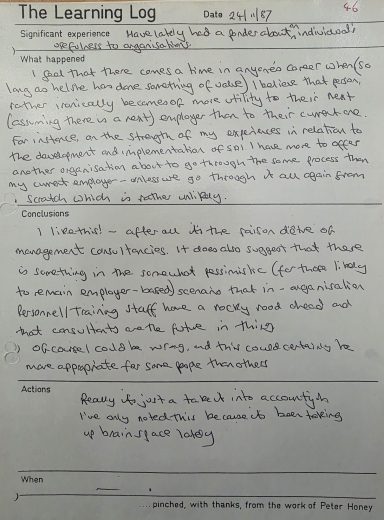 The Learning Log Date 24/11/87 46
Significant experience Have lately had a ponder about an individual's
usefulness to organisations
What happened
I feel that there comes a time in anyone's career when (so
long as he/she has done something of value) I believe that person,
rather ironically becomes of more utility to their next
(assuming there is a next) employer than to their current one.
For instance, on the strength of my experiences in relation to
the development and implementation of SDI I have more to offer
another organisation about to go through the same process than
my current employer - unless we go through it all again from
scratch which is rather unlikely.
Conclusions
I like this! - after all it's the raison d'être of
management consultancies. It does also suggest that there
is something in the somewhat pessimistic (for those likely
to remain employer-based) scenario that in-organisation
Personnel/Training staff have a rocky road ahead and
that consultants are the future in thing
Of course I could be wrong, and this could certainly be
more appropriate for some people than others
Actions
Really it's just a take it into account,ish
I've only noted this because it's been taking
up brain space lately
When
— .
....pinched, with thanks, from the work of Peter Honey